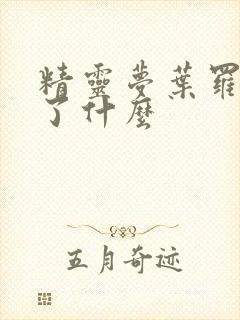 精靈夢葉羅
了什麽
五月奇迹